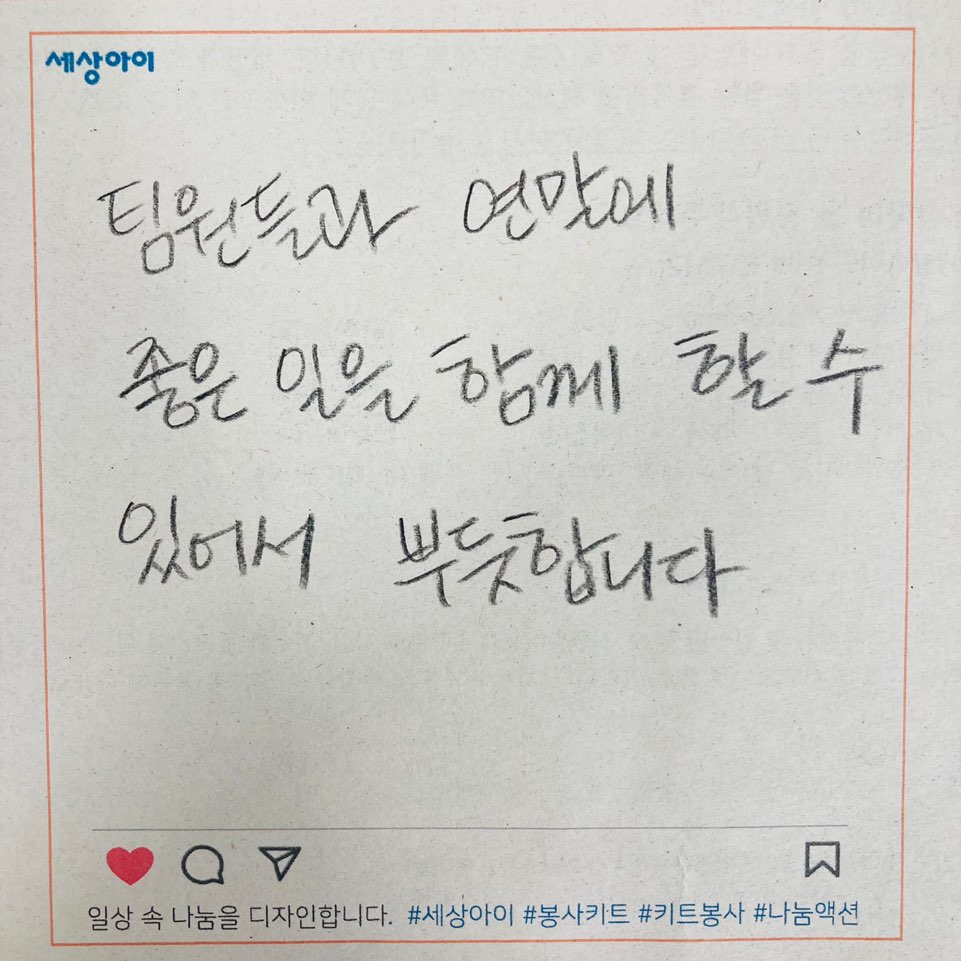 세상아이
팀원들과 연말에
좋은 일을 함께 할 수
있어서 뿌듯합니다
일상 속 나눔을 디자인합니다. #세상아이 #봉사키트 #키트봉사 #나눔액션